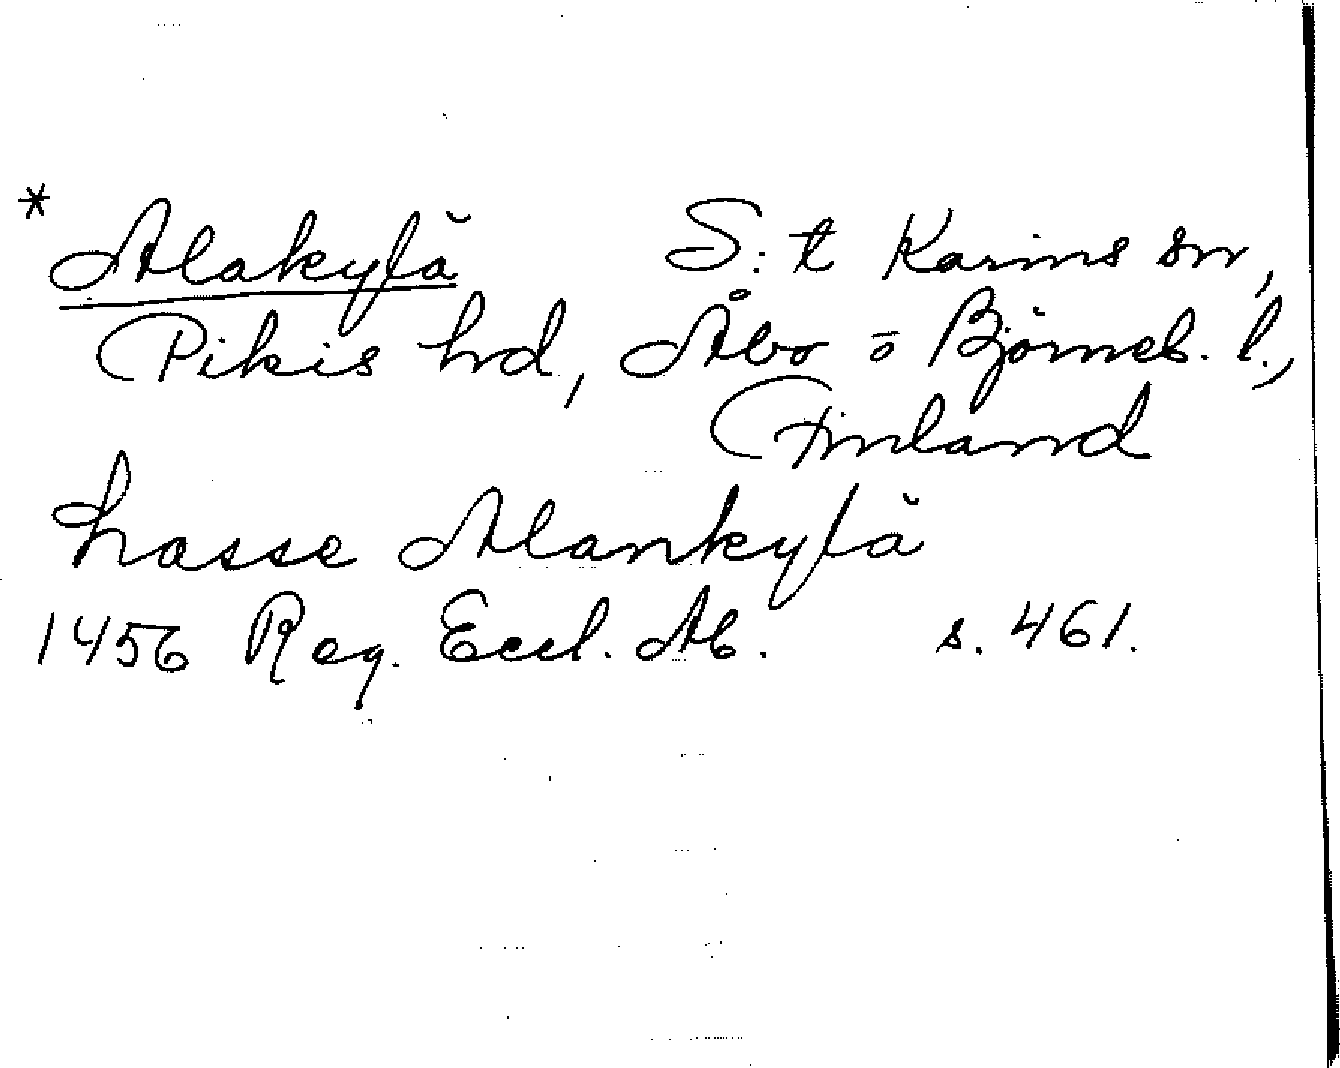 * Alakylä S:t Karins sn,
Pikis hd, Åbo o Björneb. l.,
Finland
Lasse Alankylä
1456 Reg. Eccl. Ab. s. 461.